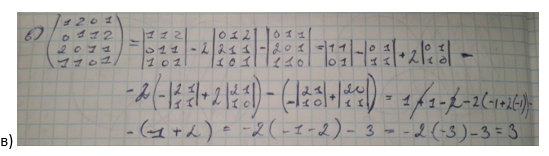 в) (1 2 0 1
0 1 1 2
2 0 1 1
1 1 0 1) = |1 1 2
0 1 1
1 0 1| - 2 |0 1 2
2 1 1
1 0 1| - |0 1 1
2 0 1
1 1 0| = |1 1
0 1| - |0 1
1 1| + 2 |0 1
1 0| -
- 2 (- |2 1
1 1| + 2 |2 1
1 0|) - (- |2 1
1 0| + |2 0
1 1|) = 1 + 1 - 2 - 2 (-1 + 2 (-1)) -
- (-1 + 2) = -2 (-1 - 2) - 3 = -2 (-3) - 3 = 3
в)